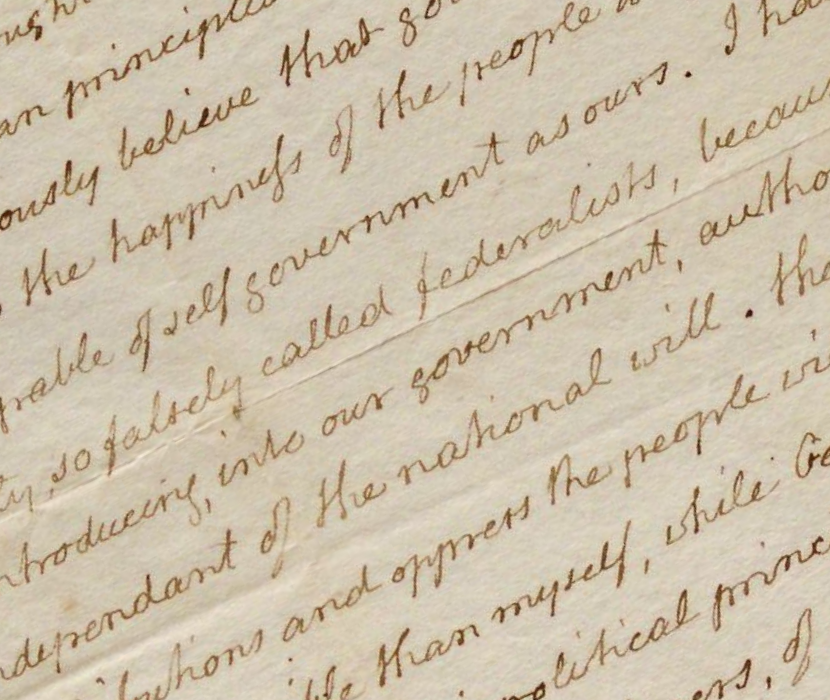 an principle
ously believe that go
the happiness of the people
pable of self government as ours. I ha
ty, so falsely called federalists, becau
ntroducing, into our government, autho
ndependant of the national will. tha
butions and oppress the people wi
ble than myself, while
political princ
ers, of